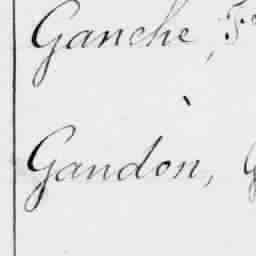 Ganche,
Gandon,